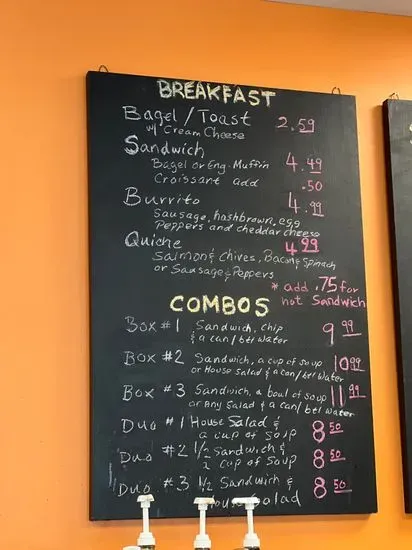 BREAKFAST
Bagel / Toast 2.59
w/ Cream Cheese
Sandwich
Bagel or Eng. Muffin 4.49
Croissant add .50
Burrito 4.99
Sausage, hashbrown, egg
Peppers and cheddar cheese
Quiche 4.99
Salmon & chives, Bacon & Spinach
or Sausage & Peppers
* add .75 for
hot Sandwich
COMBOS
Box #1 Sandwich, chip 9.99
& a can/btl water
Box #2 Sandwich, a cup of soup 10.99
or House Salad & a can/btl water
Box #3 Sandwich, a bowl of soup 11.99
or Any Salad & a can/btl water
Duo #1 House Salad & 8.50
a cup of Soup
Duo #2 1/2 Sandwich & 8.50
1/2 cup of Soup
Duo #3 1/2 Sandwich & 8.50
House Salad